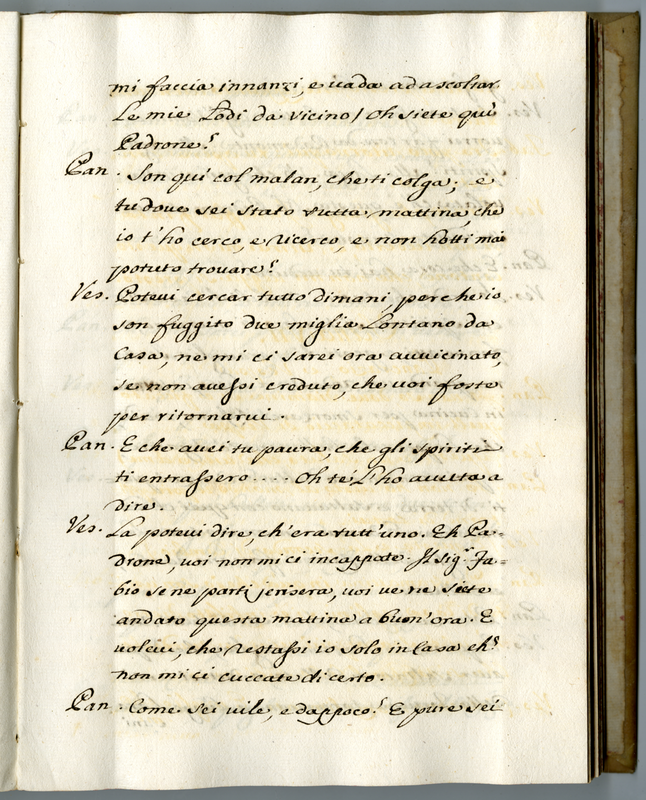 mi faccia innanzi, e vada ad ascoltar
le mie Lodi da vicino / Oh siete quì
Padrone?
Pan. Son quì col malan, che ti colga; e
tu dove sei stato tutta mattina, che
io t'ho cerco, e ricerco, e non hotti mai
potuto trovare?
Ves. Potevi cercar tutto dimani, perche io
son fuggito due miglia Lontano da
Casa, ne mi ci sarei ora avvicinato,
se non avessi croduto, che voi foste
per ritornarvi.
Pan. E che avei tu paura, che gli spiriti
ti entrassero .... Oh te l'ho avuta a
dire.
Ves. La potevi dire, ch'era tutt'uno. Eh Pa=
drone, voi non mi ci incappate. Il sig.r Fa=
bio se ne partì jerisera, voi ve ne siete
andato questa mattina a buon'ora. E
volevi, che restassi io solo in Casa eh?
non mi ci cuccate di certo.
Pan. Come sei vile, e dappoco! E pure sei